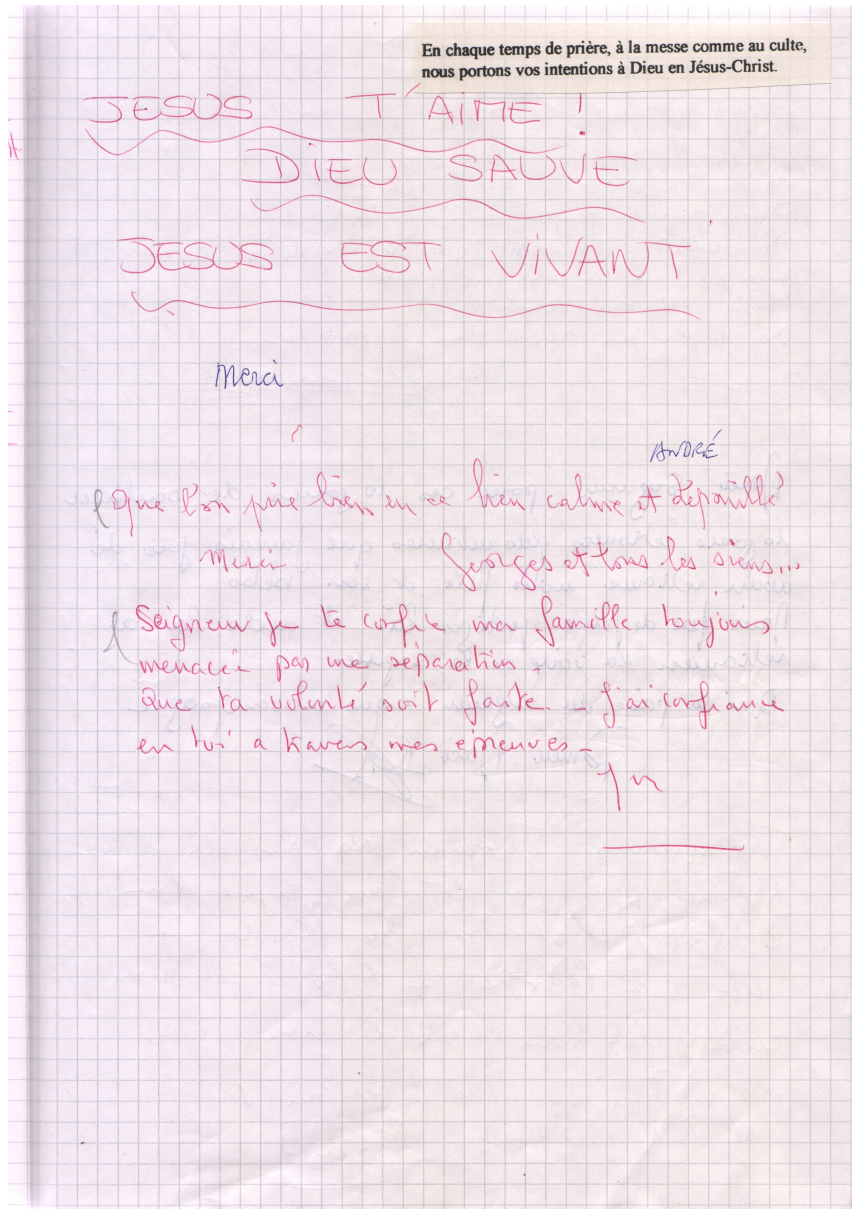 En chaque temps de prière, à la messe comme au culte,
nous portons vos intentions à Dieu en Jésus-Christ.
JESUS T'AIME !
DIEU SAUVE
JESUS EST VIVANT
Merci
ANDRÉ
Que l'on prie bien en ce lieu calme et dépouillé
Merci Georges et tous les siens...
Seigneur je te confie ma famille toujours
menacée par une séparation.
Que ta volonté soit faite. _ j'ai confiance
en toi a travers mes épreuves _